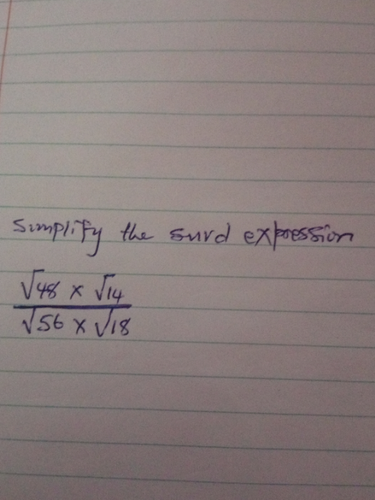 Simplify the surd expression
√48 × √14
√56 × √18